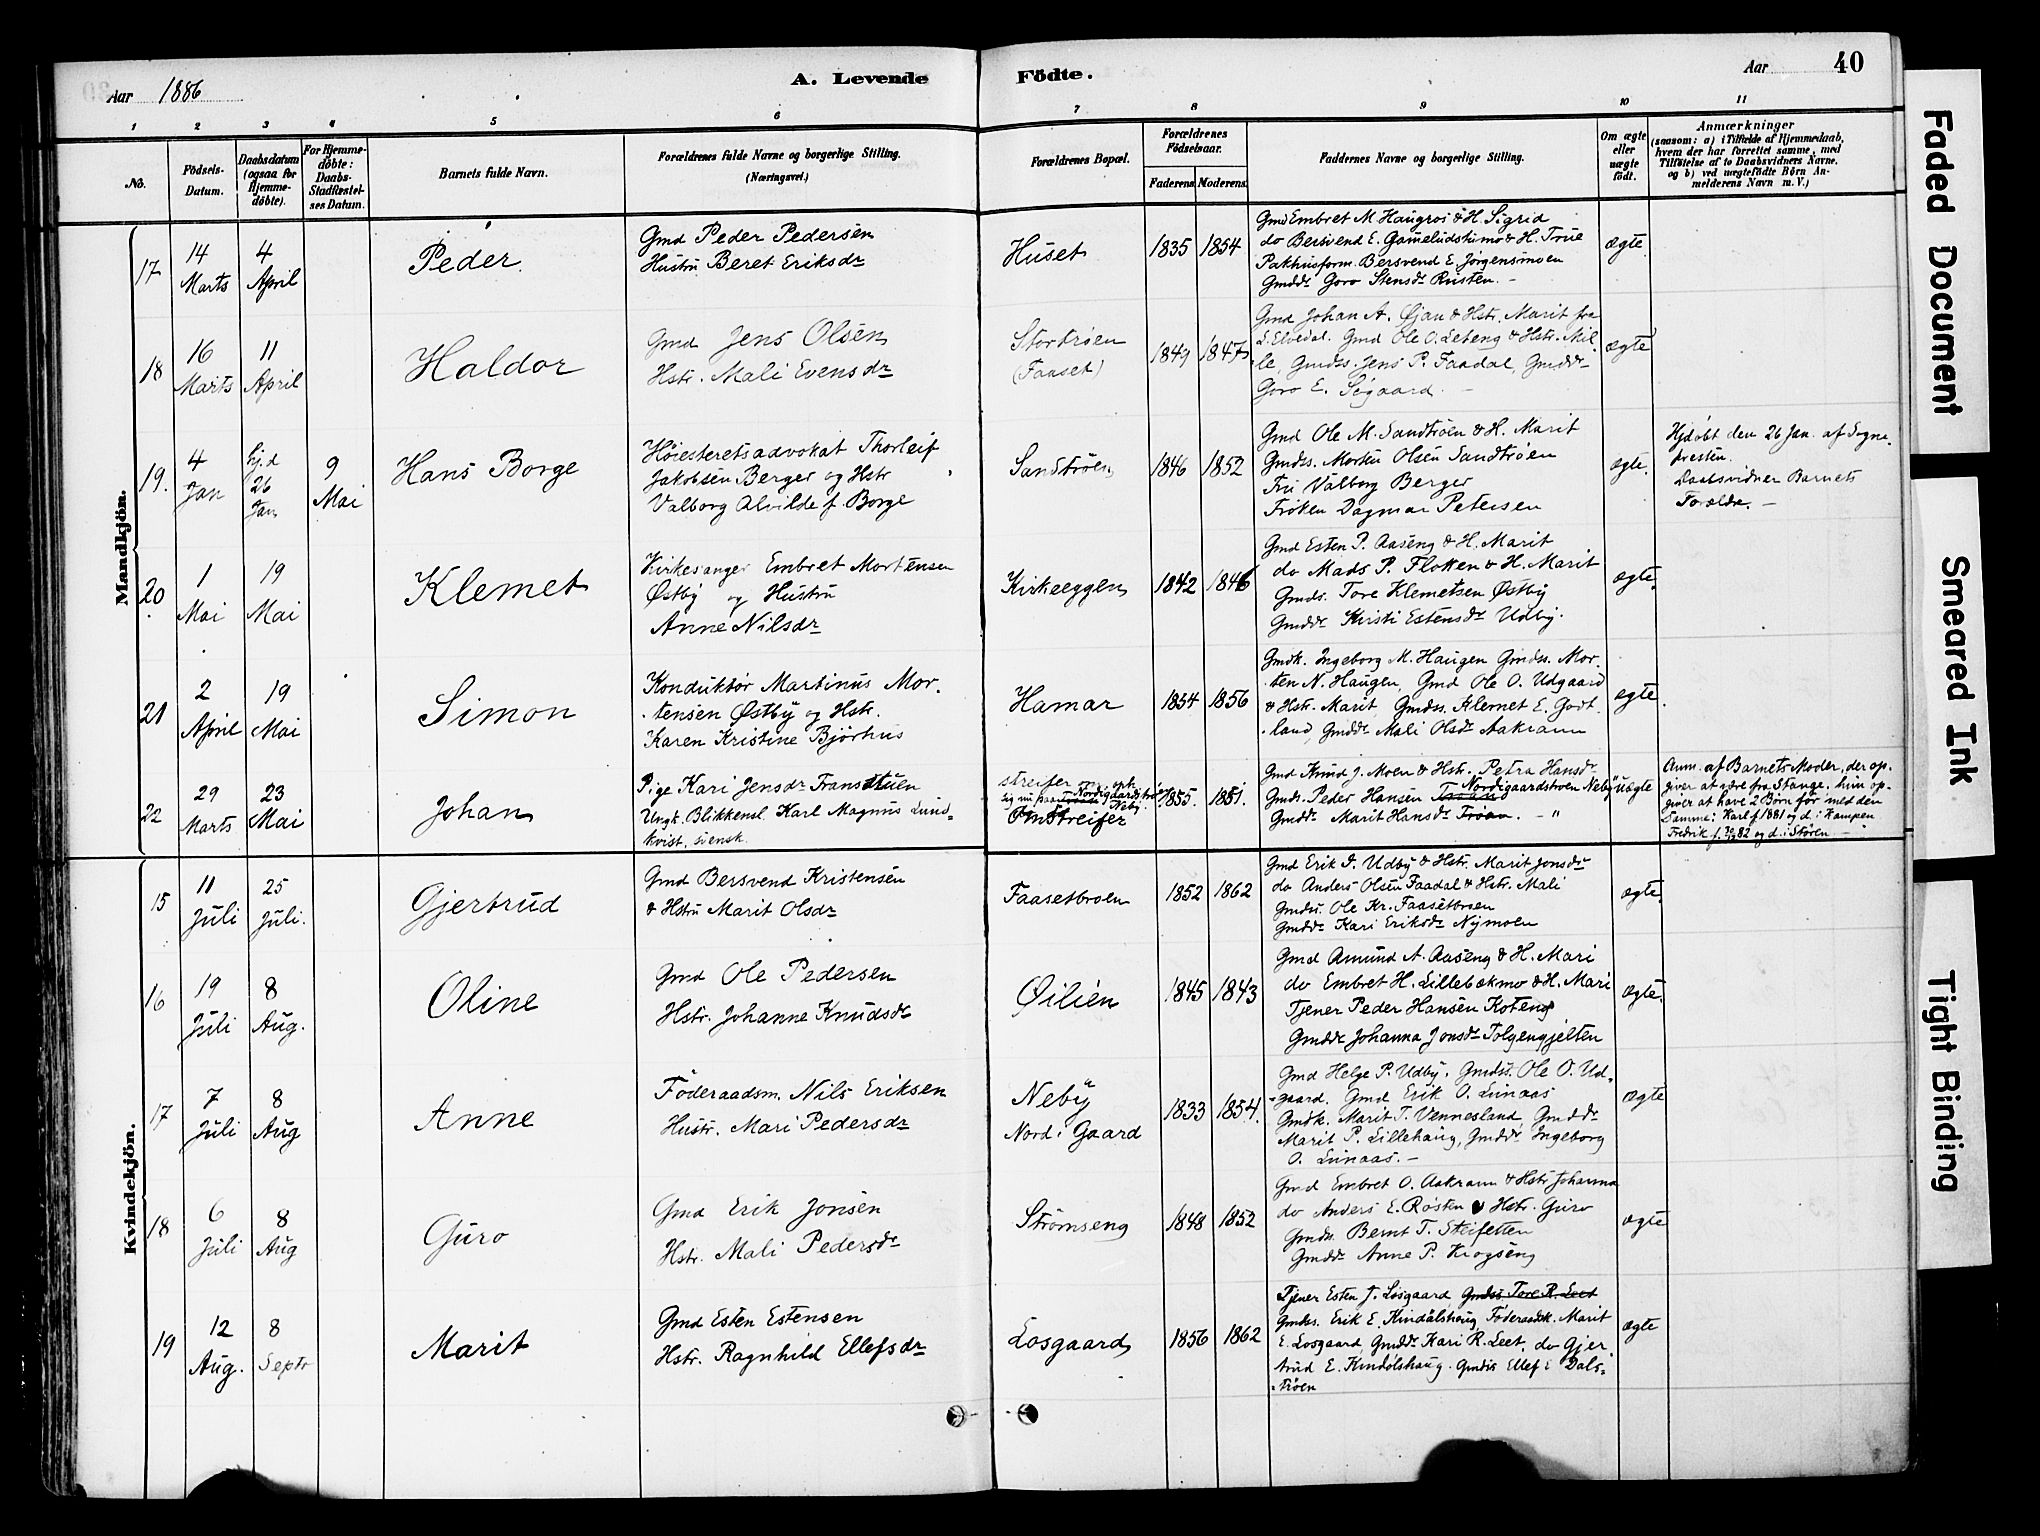 Aar 1886
A. Levende Födte.
Aar 40
1 2 3 4 5 6 7 8 9 10 11
No.
Födsels-
Datum.
Daabsdatum
(ogsaa for
Hjemme-
döbte).
For Hjemme-
döbte:
Daabs-
Stadfæstel-
ses Datum.
Barnets fulde Navn.
Forældrenes fulde Navne og borgerlige Stilling.
(Næringsvei.)
Forældrenes Bopæl.
Forældrenes
Födselsaar.
Faderens Moderens
Faddernes Navne og borgerlige Stilling.
Om ægte
eller
uægte
födt.
Anmærkninger
(saasom: a) i Tilfælde af Hjemmedaab,
hvem der har forrettet samme, med
Tilföielse af to Daabsvidners Navne.
og b) ved uægtefödte Börn An-
melderens Navn m. V.)
Mandkjön.
17
14
Marts
4
April
Peder
Gmd Peder Pedersen
Hustru Beret Eriksdr
Huset
1835 1854
Gmd Embret M. Haugros & H. Sigrid
do Bersvend E. Gammeludstumo & H. True
Pakhusform. Bersvend E. Jørgensmoen
Gmdd. Goro Stensdr Rusten. -
ægte
18
16
Marts
11
April
Haldor
Gmd Jens Olsen
Hstr. Mali Evensdr
Stortrøen
(Faaset)
1849 1847
Gmd Johan A. Øjan & Hstr. Marit fra
L. Elvedal. Gmd Ole O. Leteng & Hstr. Mil-
le, Gmdss. Jens P. Faadal, Gmddr
Goro E. Søgaard. -
ægte
19.
4
Jan
hj.d
26
Jan
9
Mai
Hans Borge
Høiesteretsadvokat Thorleif
Jakobsen Berger og Hstr
Valborg Alvilde f. Borge
Sandtrøen
1846 1852
Gmd Ole M. Sandtrøen & H. Marit
Gmdss. Morten Olsen Sandtrøen
Fru Valborg Berger
Frøken Dagmar Petersen
ægte.
Hjdøbt den 26 Jan. af Sogne-
presten.
Daabsvidner Barnets
Forældre. -
20
1
Mai
19
Mai
Klemet
Kirkesanger Embret Mortensen
Østby og Hustru
Anne Nilsdr
Kirkeeggen
1842 1846
Gmd Esten P. Aaseng & H. Marit
do Mads P. Floken & H. Marit
Gmds. Tore Klemetsen Østby
Gmddr Kirsti Estensdr Udby.
ægte.
21
2
April
19
Mai
Simon
Konduktør Martinus Mor-
tensen Østby og Hstr.
Karen Kristine Bjørhus
Hamar
1854 1856
Gmdk. Ingeborg M. Haugen Gmdss. Mor-
ten N. Haugen, Gmd Ole O. Udgaard
& Hstr. Marit, Gmdss. Klemet E. Godt-
land, Gmddr Mali Olsdr Aakrann
ægte
22
29
Marts
23
Mai
Johan
Pige Kari Jensdr Fransstuen
Ungk. Blikkensl. Karl Magnus Lund-
kvist, svensk.
streifer
Nordigaardstroen
Neby.
Omstreifer
1855. 1851.
Gmd Knud J. Moen & Hstr. Petra Hansdr
Gmds. Peder Hansen Troan Nordigaardstroen Neby
Gmddr Marit Hansdr Troan. - "
uægte
Anm. af Barnets Moder, der op-
giver at være fra Stange. hun op-
giver at have 2 Børn før med den
Samme: Karl f. 1881 og d. i Kampen
Fredrik f. 82 og d. i Støren. -
Kvindekjön.
15
11
Juli
25
Juli.
Gjertrud
Gmd Bersvend Kristensen
& Hstru Marit Olsdr
Faasetbroen
1852 1862
Gmd Erik I. Udby & Hstr. Marit Jonsdr
do Anders Olsen Faadal & Hstr. Mali
Gmdss. Ole Kr. Faasetbroen
Gmddr Kari Eriksdr Nymoen
ægte.
16
19
Juli
8
Aug.
Oline
Gmd Ole Pedersen
Hstr. Johanne Knudsdr
Øilien
1845 1843
Gmd Amund A. Aaseng & H. Mari
do Embret H. Lillebakmo & H. Mari
Tjener Peder Hansen Koteng
Gmddr Johanna Jonsdr Tolgengjelten
ægte.
17
7
Juli
8
Aug
Anne
Föderaadsm. Nils Eriksen
Hustr. Mari Pedersdr
Neby
Nord i Gaard
1833 1854.
Gmd Helge P. Udby. Gmdss. Ole O. Ud-
gaard. Gmd Erik O. Lunaas
Gmdk. Marit T. Vennesland, Gmddr
Marit P. Lillehaug, Gmddr Ingeborg
O. Lunaas. -
ægte
18
6
Juli
8
Aug
Guro
Gmd Erik Jonsen
Hstr. Mali Pedersdr
Strømseng
1848 1852
Gmd Embret O. Aakrann & Hstr Johanna
do Anders E. Røsten & Hstr. Guro
Gmdss. Bernt T. Steifetten
Gmddr Anne P. Krogseng
ægte
19
12
Aug.
8
Septr
Marit
Gmd Esten Estensen
Hstr. Ragnhild Ellefsdr
Losgaard
1856 1862
Tjener Esten J. Losgaard Gmdss. Tore R. Leet
Gmdss. Erik E. Kindølshaug, Föderaadsk. Marit
E. Losgaard, Gmddr Kari R. Leet, do Gjer-
trud E. Kindølshaug. Gmdss Ellef E Dals-
trøen
ægte
Faded Document
Smeared Ink
Tight Binding